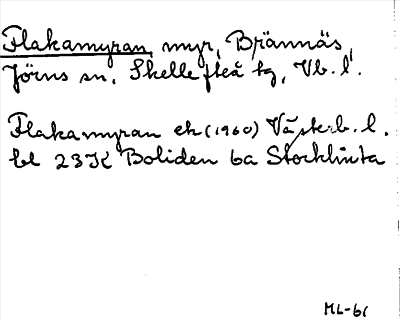 Flakamyran, myr, Brännäs,
Jörns sn, Skellefteå tg, Vb. l.
Flakamyran ek (1960) Västerb. l.
bl 23 K Boliden 6a Stocklinta
ML-61